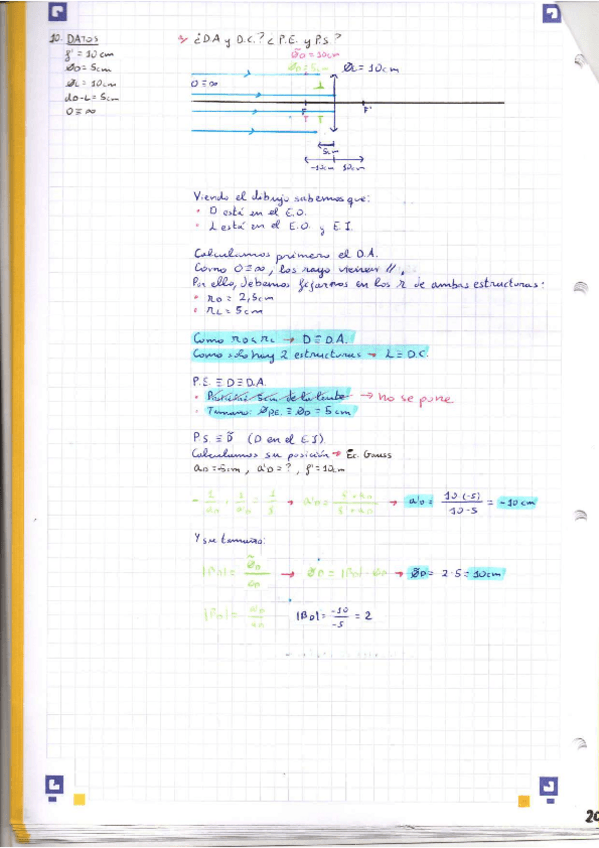 10. DATOS
f' = 10 cm
ØD = 5cm
ØL = 10cm
dD-L = 5cm
O ≡ ∞
¿D.A y D.C.? ¿P.E. y P.S.?
Ø̃D = 10cm
ØD = 5cm
ØL = 10cm
O ≡ ∞
F
F'
5cm
-10cm 10cm
Viendo el dibujo sabemos que:
• D está en el E.O.
• L está en el E.O. y E.I.
Calculamos primero el D.A.
Como O≡∞, los rayo vienen //.
Por ello, debemos fijarnos en los r de ambas estructuras:
• rD = 2,5cm
• rL = 5cm
Como rD < rL → D ≡ D.A.
Como solo hay 2 estructuras → L ≡ D.C.
P.E. ≡ D ≡ D.A.
• Posición: 5cm de la lente → no se pone
• Tamaño: ØP.E. ≡ ØD = 5cm
P.S. ≡ D̃ (D en el E.I)
Calculamos su posición → Ec. Gauss
aD = -5cm, a'D = ?, f' = 10cm
- 1/aD + 1/a'D = 1/f' → a'D = f'·aD / f'+aD → a'D = 10·(-5) / 10-5 = -10cm
Y su tamaño:
|βD| = Ø̃D/ØD → Ø̃D = |βD|·ØD → Ø̃D = 2·5 = 10cm
|βD| = a'D/aD |βD| = -10/-5 = 2